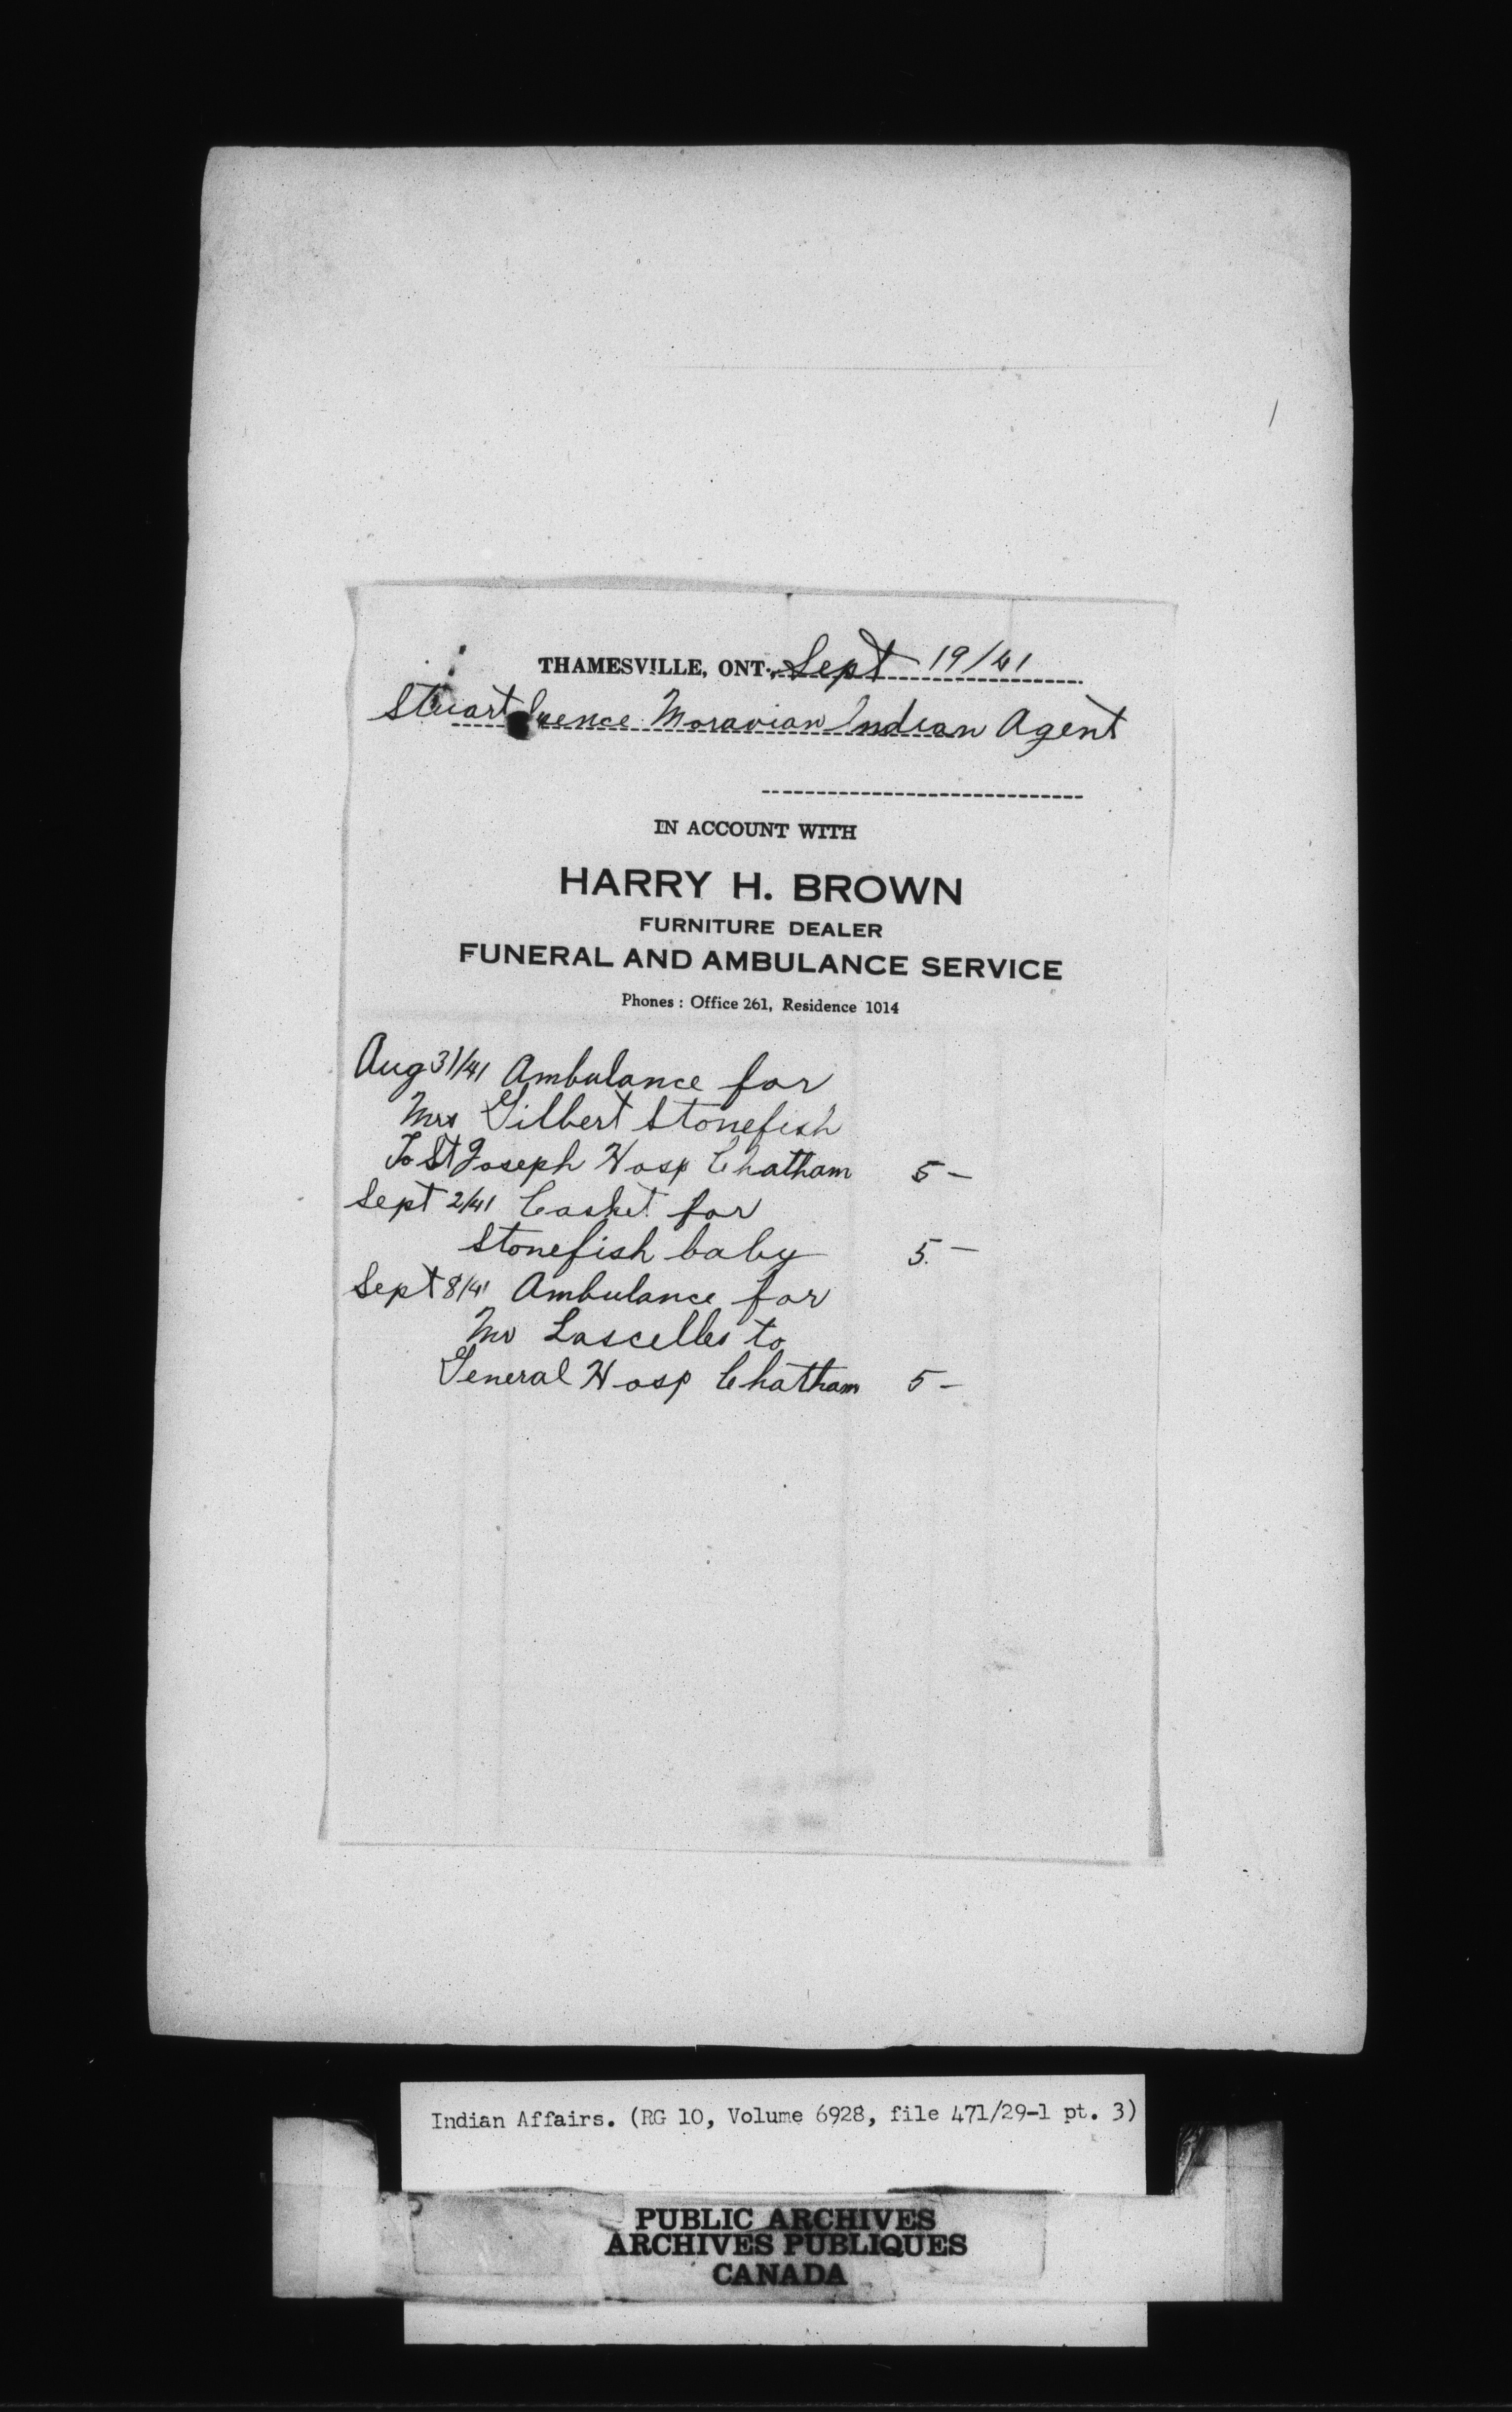 THAMESVILLE, ONT., Sept 19/41
Stuart Spence Moravian Indian Agent
IN ACCOUNT WITH
HARRY H. BROWN
FURNITURE DEALER
FUNERAL AND AMBULANCE SERVICE
Phones : Office 261, Residence 1014
Aug 31/41 Ambulance for
Mrs Gilbert Stonefish
To St Joseph Hosp Chatham 5 -
Sept 2/41 Casket for
Stonefish baby 5. -
Sept 8/41 Ambulance for
Mr Lascelles to
General Hosp Chatham 5 -
Indian Affairs. (RG 10, Volume 6928, file 471/29-1 pt. 3)
PUBLIC ARCHIVES
ARCHIVES PUBLIQUES
CANADA